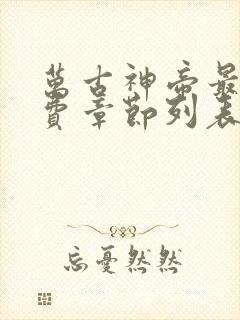 萬古神帝最
費章節列表
忘憂然然